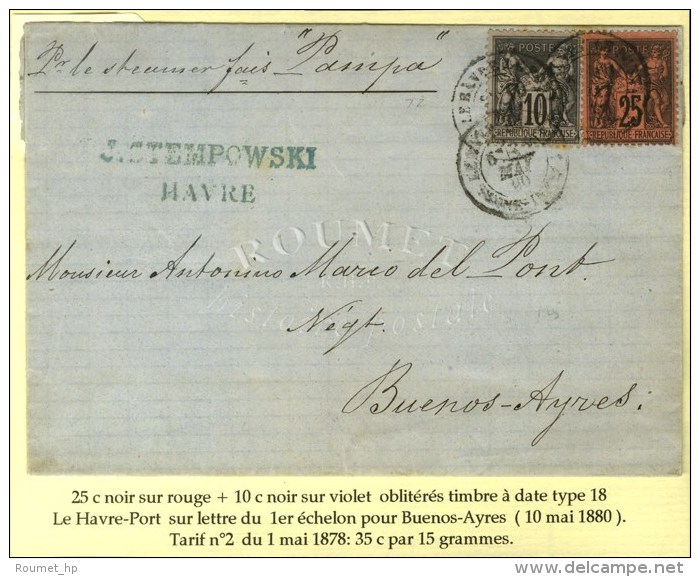 Pr le steamer fçais "Pampa"
J. STEMPOWSKI
HAVRE
POSTE
10
REPUBLIQUE FRANÇAISE
POSTE
25
REPUBLIQUE FRANÇAISE
LE HAVRE
MAI
80
ROUMET
histoire postale
Monsieur Antonino Marcó del Pont.
Négt.
Buenos-Ayres.
25 c noir sur rouge + 10 c noir sur violet oblitérés timbre à date type 18
Le Havre-Port sur lettre du 1er échelon pour Buenos-Ayres ( 10 mai 1880 ).
Tarif n°2 du 1 mai 1878: 35 c par 15 grammes.
©Roumet_hp
delcampe.net